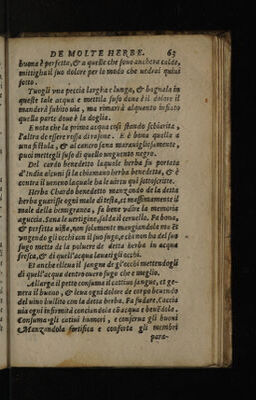 DE MOLTE HERBE. 63
buona è perfetta, & a quelle che sono anchora calde,
mittigha il suo dolore per lo modo che uedrai quiui
sotto.
Tuogli vna peccia largha e lunga, & bagnala in
queste tale acqua e mettila suso doue è il dolore il
manderà subito uia, ma rimarà alquanto infisto
quella parte doue è la doglia.
E nota che la prima acqua così stando schiarita,
l'altra de essere rossa di rasone. E è bona quella a
una fistula, & al cancro sana marauigliosamente,
puoi mettegli suso di quello vnguento negro.
Del cardo benedetto laquale herba fu portata
d'India alcuni si la chiamano herba benedetta, & è
contra il ueneno laquale ha le uirtu qui sottoscritte.
Herba Chardo benedetto mangando de la detta
herba guarisse ogni male di testa, et massimamente il
male della hemigranca, fa bene vdire la memoria
aguccia. Sana le uertigine, salda il ceruello. Fa bona,
& perfetta uista, non solumente mangiandola ma è
vngendo gli occhi con il suo sugo, e chi non ha del suo
sugo metta de la poluere de detta herba in acqua
fresca, & di quell'acqua lauati gli occhi.
Et anche elleua il sangue de gl'occhi mettendogli
di quell'acqua dentro ouero sugo che è meglio.
Allarga il petto consuma il cattiuo sangue, et ge
nera il buono, & leua ogni dolore de corpo beuendo
del uino bullito con la detta herba. Fa sudare. Caccia
uia ogni infirmità conciandola cō acqua e benedola.
Consuma gli catiui humori, e conserua gli buoni
Manzandola fortifica e conforta gli membri
para-